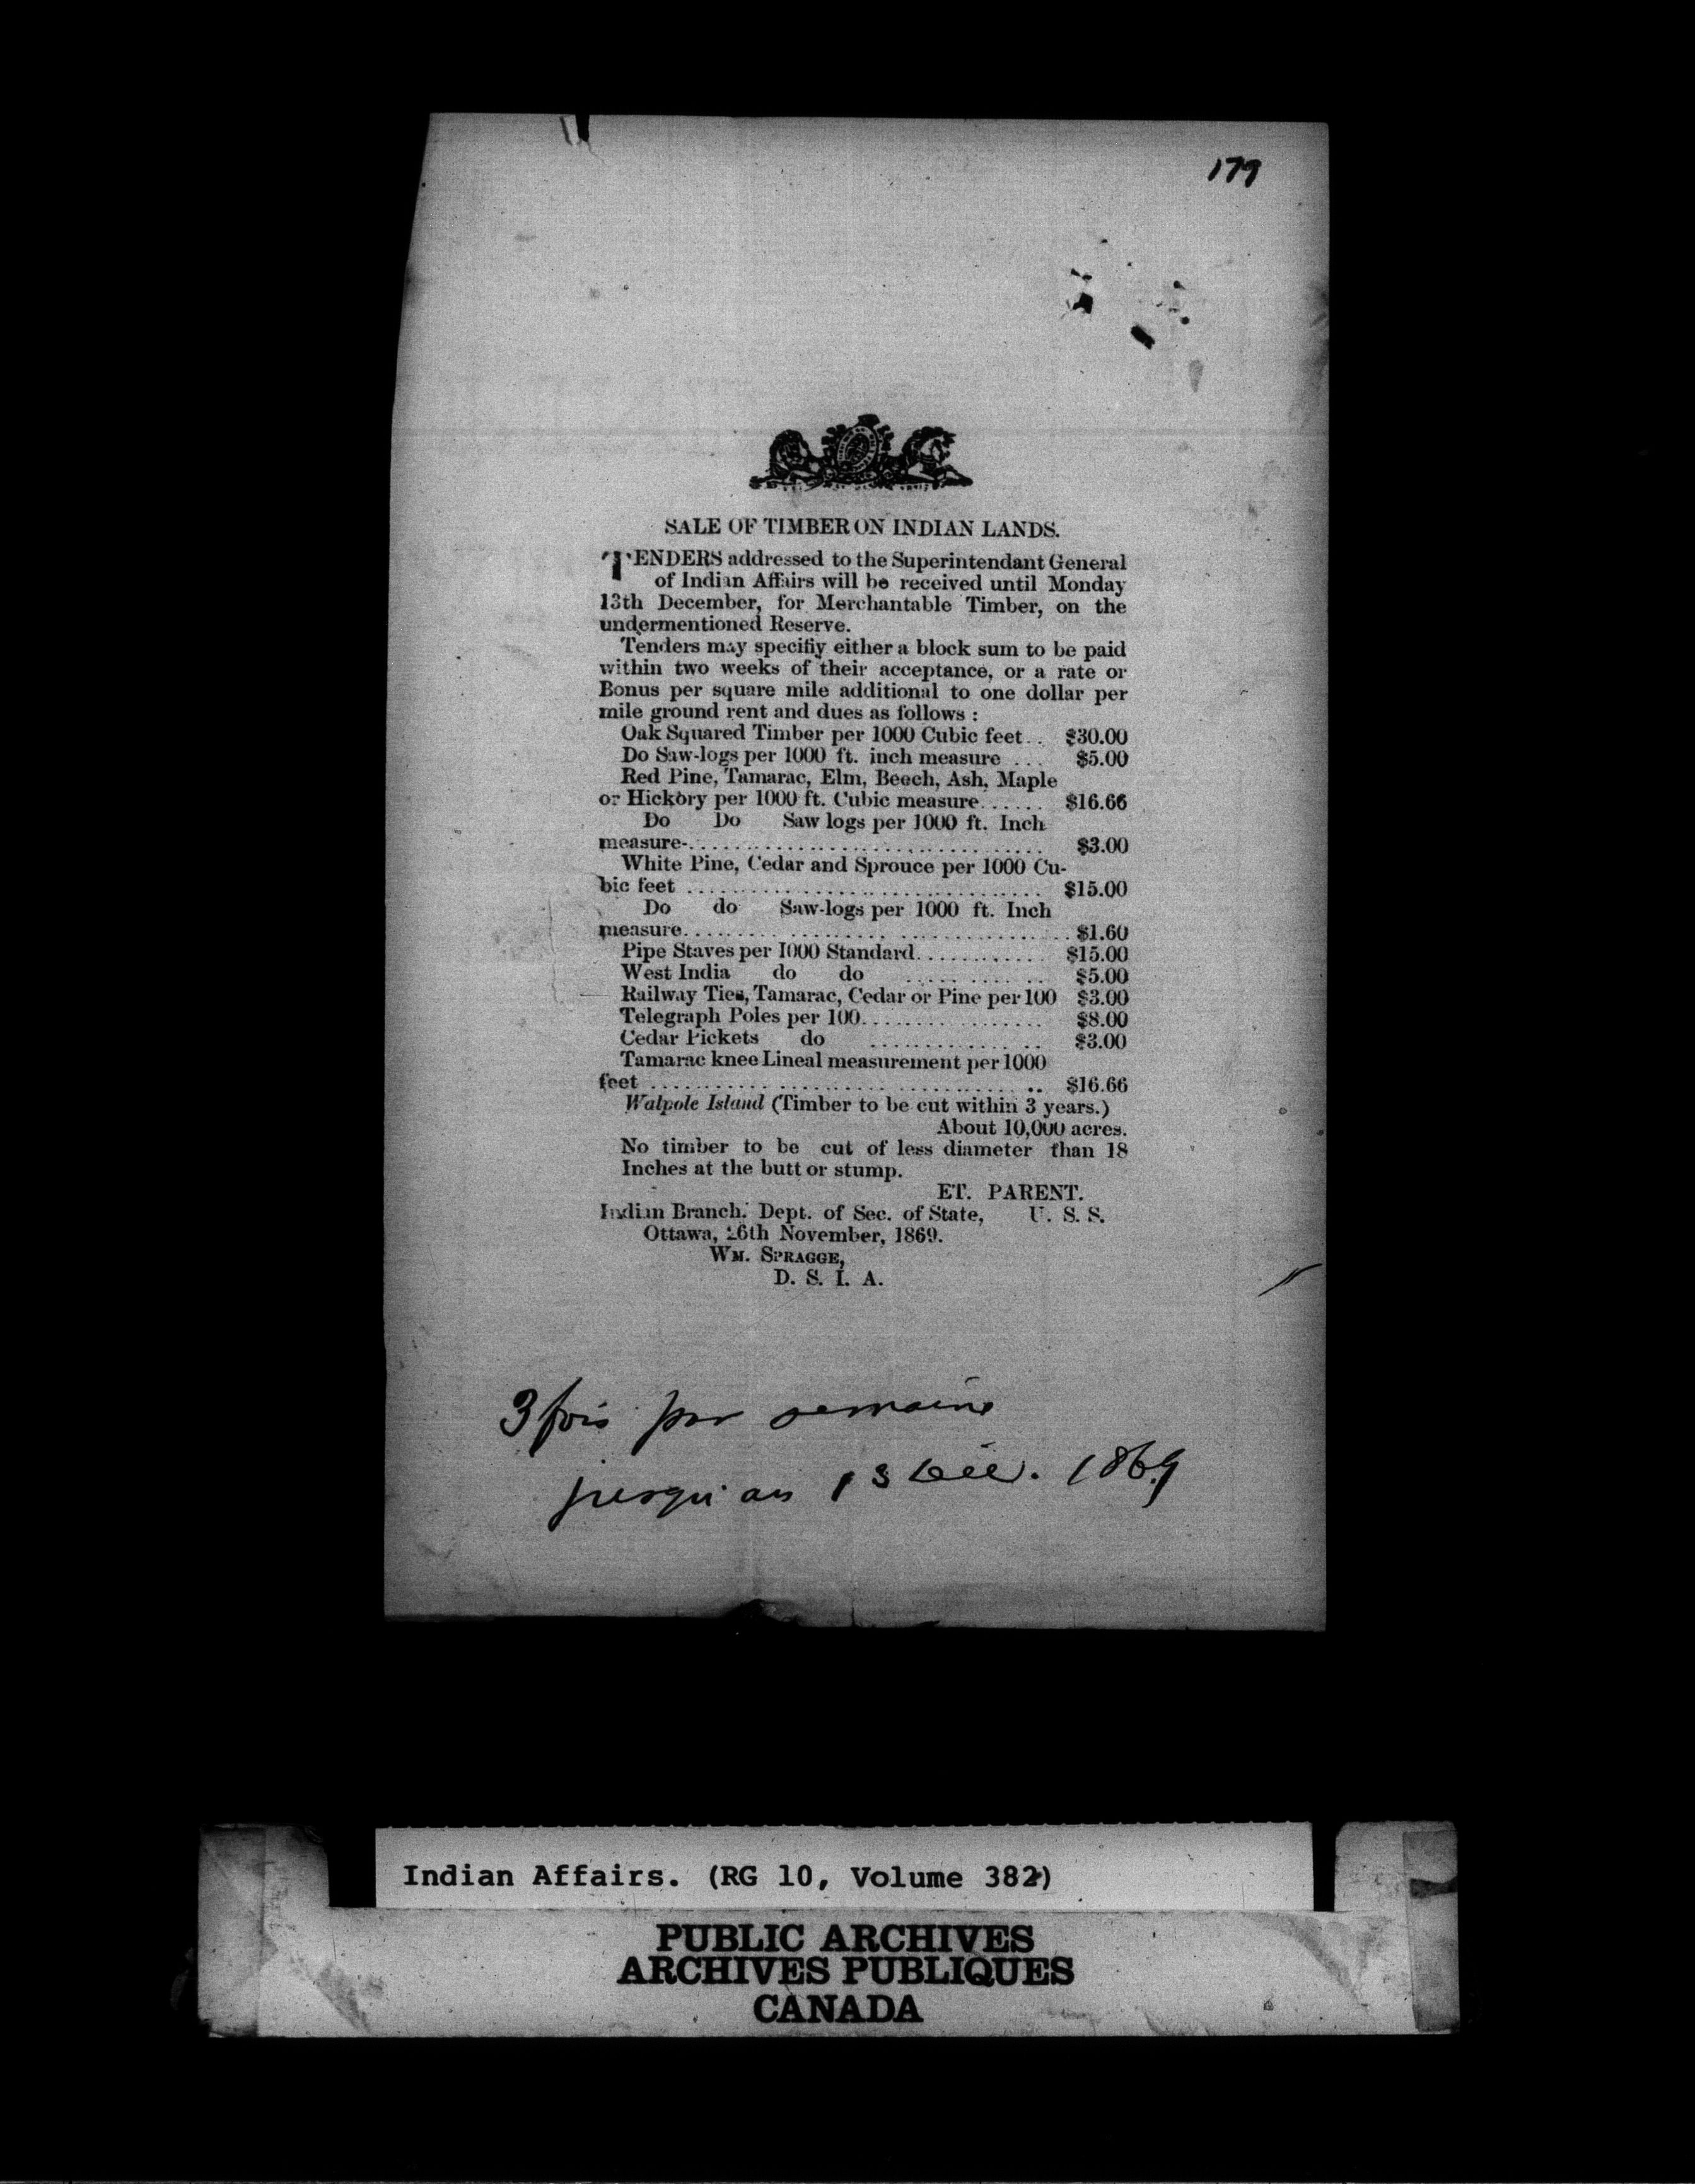 179
SALE OF TIMBER ON INDIAN LANDS.
TENDERS addressed to the Superintendant General
of Indian Affairs will be received until Monday
13th December, for Merchantable Timber, on the
undermentioned Reserve.
Tenders may specifiy either a block sum to be paid
within two weeks of their acceptance, or a rate or
Bonus per square mile additional to one dollar per
mile ground rent and dues as follows :
Oak Squared Timber per 1000 Cubic feet.. $30.00
Do Saw-logs per 1000 ft. inch measure ... $5.00
Red Pine, Tamarac, Elm, Beech, Ash, Maple
or Hickory per 1000 ft. Cubic measure...... $16.66
Do Do Saw logs per 1000 ft. Inch
measure-................................ $3.00
White Pine, Cedar and Sprouce per 1000 Cu-
bic feet ................................ $15.00
Do do Saw-logs per 1000 ft. Inch
measure.................................. $1.60
Pipe Staves per 1000 Standard............ $15.00
West India do do ............ $5.00
Railway Ties, Tamarac, Cedar or Pine per 100 $3.00
Telegraph Poles per 100................. $8.00
Cedar Pickets do .............. $3.00
Tamarac knee Lineal measurement per 1000
feet .................................. $16.66
Walpole Island (Timber to be cut within 3 years.)
About 10,000 acres.
No timber to be cut of less diameter than 18
Inches at the butt or stump.
ET. PARENT.
Indian Branch. Dept. of Sec. of State, U. S. S.
Ottawa, 26th November, 1869.
WM. SPRAGGE,
D. S. I. A.
3 fois par semaine
jusqu'au 13 Déc. 1869
Indian Affairs. (RG 10, Volume 382)
PUBLIC ARCHIVES
ARCHIVES PUBLIQUES
CANADA